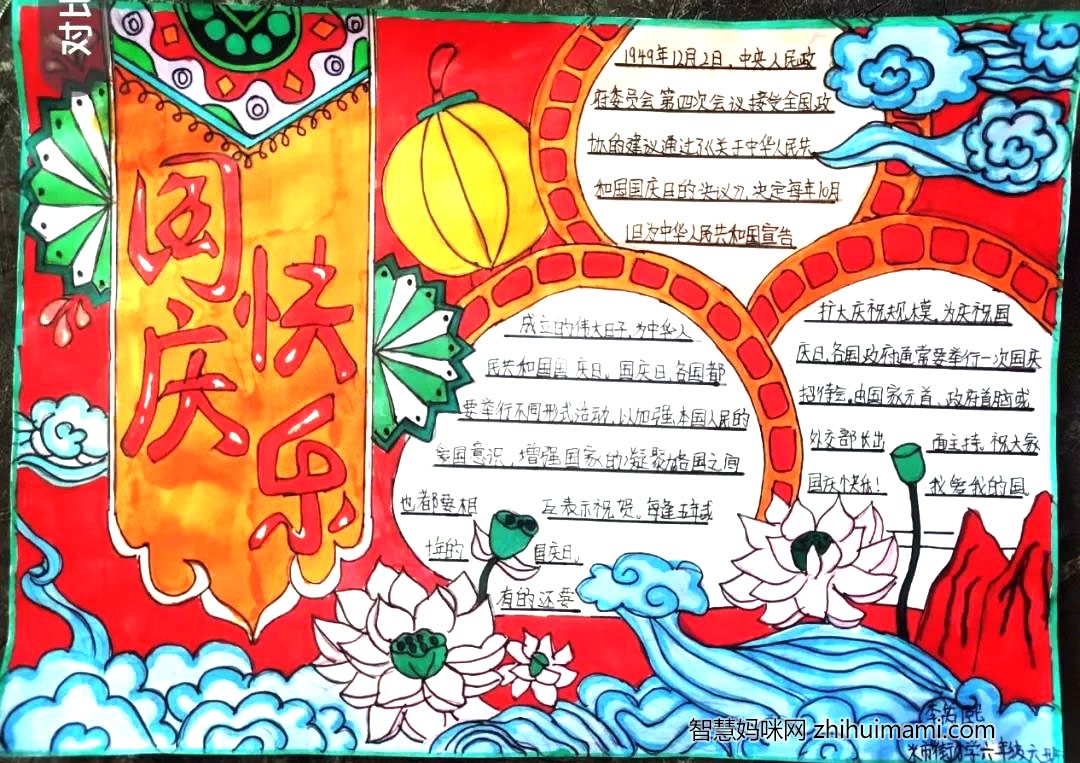 对比
国庆
快乐
1949年12月2日，中央人民政
府委员会第四次会议接受全国政
协的建议通过了《关于中华人民共
和国国庆日的决议》，决定每年10月
1日为中华人民共和国宣告
成立的伟大日子，为中华人
民共和国国庆日。国庆日，各国都
要举行不同形式活动，以加强本国人民的
爱国意识，增强国家的凝聚力各国之间
也都要相互表示祝贺。每逢五年或
十年的国庆日。
有的还要
扩大庆祝规模，为庆祝国
庆日，各国政府通常要举行一次国庆
招待会，由国家元首、政府首脑或
外交部长出面主持。祝大家
国庆快乐！我爱我的国。
智慧妈咪网 zhihuimami.com
六年级六班